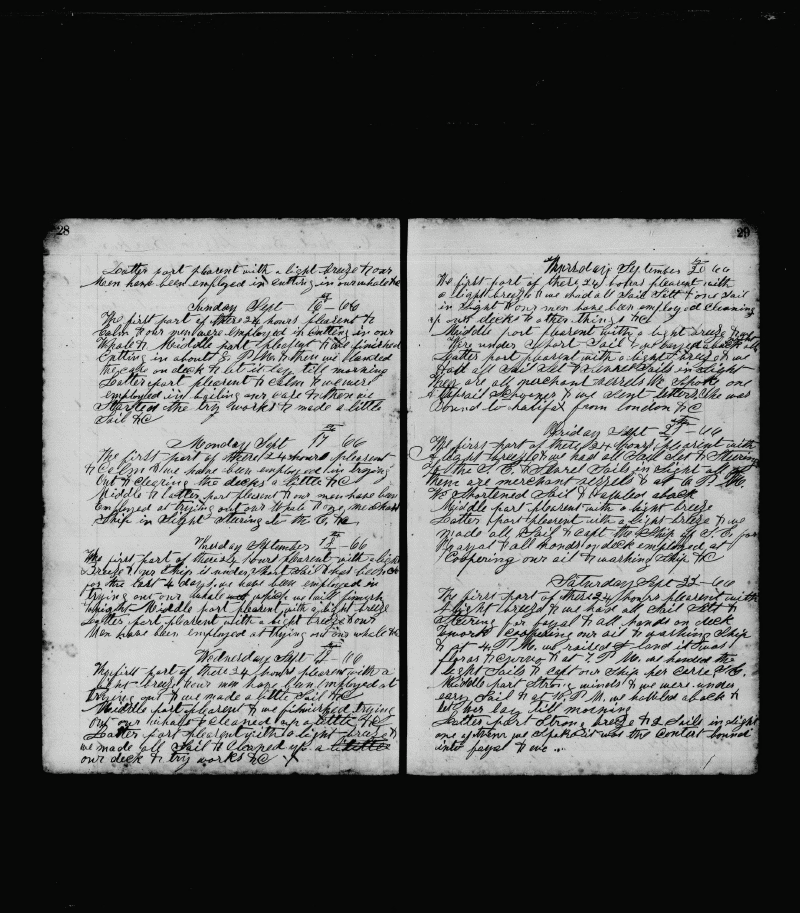 28
Latter part plesent with a light breeze & our
Men have been employed in cutting in our whale &c
Sunday Sept 16th -66
The first part of these 24 hours plesent &
calm & our men were employed in cutting in our
Whale & Middle part plesent & we finished
Cutting in about 8 P.M. & then we landed
the case on deck & let it lay till morning
Latter part plesent & calm & we were
employed in bailing our case & then we
Started the try works & made a little
Sail &c
Monday Sept 17th 66
The first part of these 24 hours plesent
& Calm & we have been employed in trying
Out & clearing the decks a little &c
Middle & latter part plesent & our men have ben
Employed at trying out our whale & one
Ship in Sight Stearing to the &c
Tuesday September 18th -66
The first part of these 24 hours plesent with a light
Breeze & our Ship is under Short Sail & has been
for the last 4 days, we have been employed in
trying out our whale which we will finnish
tonight Middle part plesent with a light breeze
Latter part plesent with a light breeze & our
Men have been employed at trying out our whale &c
Wednesday Sept 19th -66
The first part of these 24 hours plesent with a
light breeze & our men have ben employed at
trying out & we made a little Sail &c
Middle part plesent & we finnished trying
Out our whale & cleaned up a little &c
Latter part plesent with a light breeze &
we made all Sail & cleaned up a little
our deck & try works &c
29
Thursday September 20th 66
The first part of these 24 hours plesent with
a light breeze & we had all Sail Sett & one Sail
in Sight & our men have been employed cleaning
up our decks & other things &c
Middle part plesent with a light breeze & we
Were under Short Sail &
Latter part plesent with a light breeze & we
had all Sail Set & Sails in Sight
they are all merchant vessels We Spoke one
Schooner & we Sent letters. She was
bound to halifax from london &c
Friday Sept 21st -66
The first part of these 24 hours plesent with
A light breeze & we had all Sail Set & Stearing
to the S. E. & Sails in Sight all of
them are merchant vessels & at 6 P. M.
We Shortened Sail & hawled aback
Middle part plesent with a light breeze
Latter part plesent with a light breeze & we
made all Sail & Kept the Ship off S. E. for
Fayal & all hands on deck employed at
Coopering our oil & washing Ship &c
Saturday Sept 22 -66
The first part of these 24 hours plesent with
A light breeze & we have all Sail Sett &
Stearing for fayal & all hands on deck
to work Coopering our oil & washing Ship
& at 4 P. M. we raised land it was
floras & Corvo & at 7 P. M. we handed the
light Sails & let our Ship
Middle part Strong winds & we were under
easy Sail & at P. M. we hawled aback &
let her lay till morning
Latter part Strong breeze & 2 Sails in Sight
one of them we Spoke it was the bound
into fayal & we